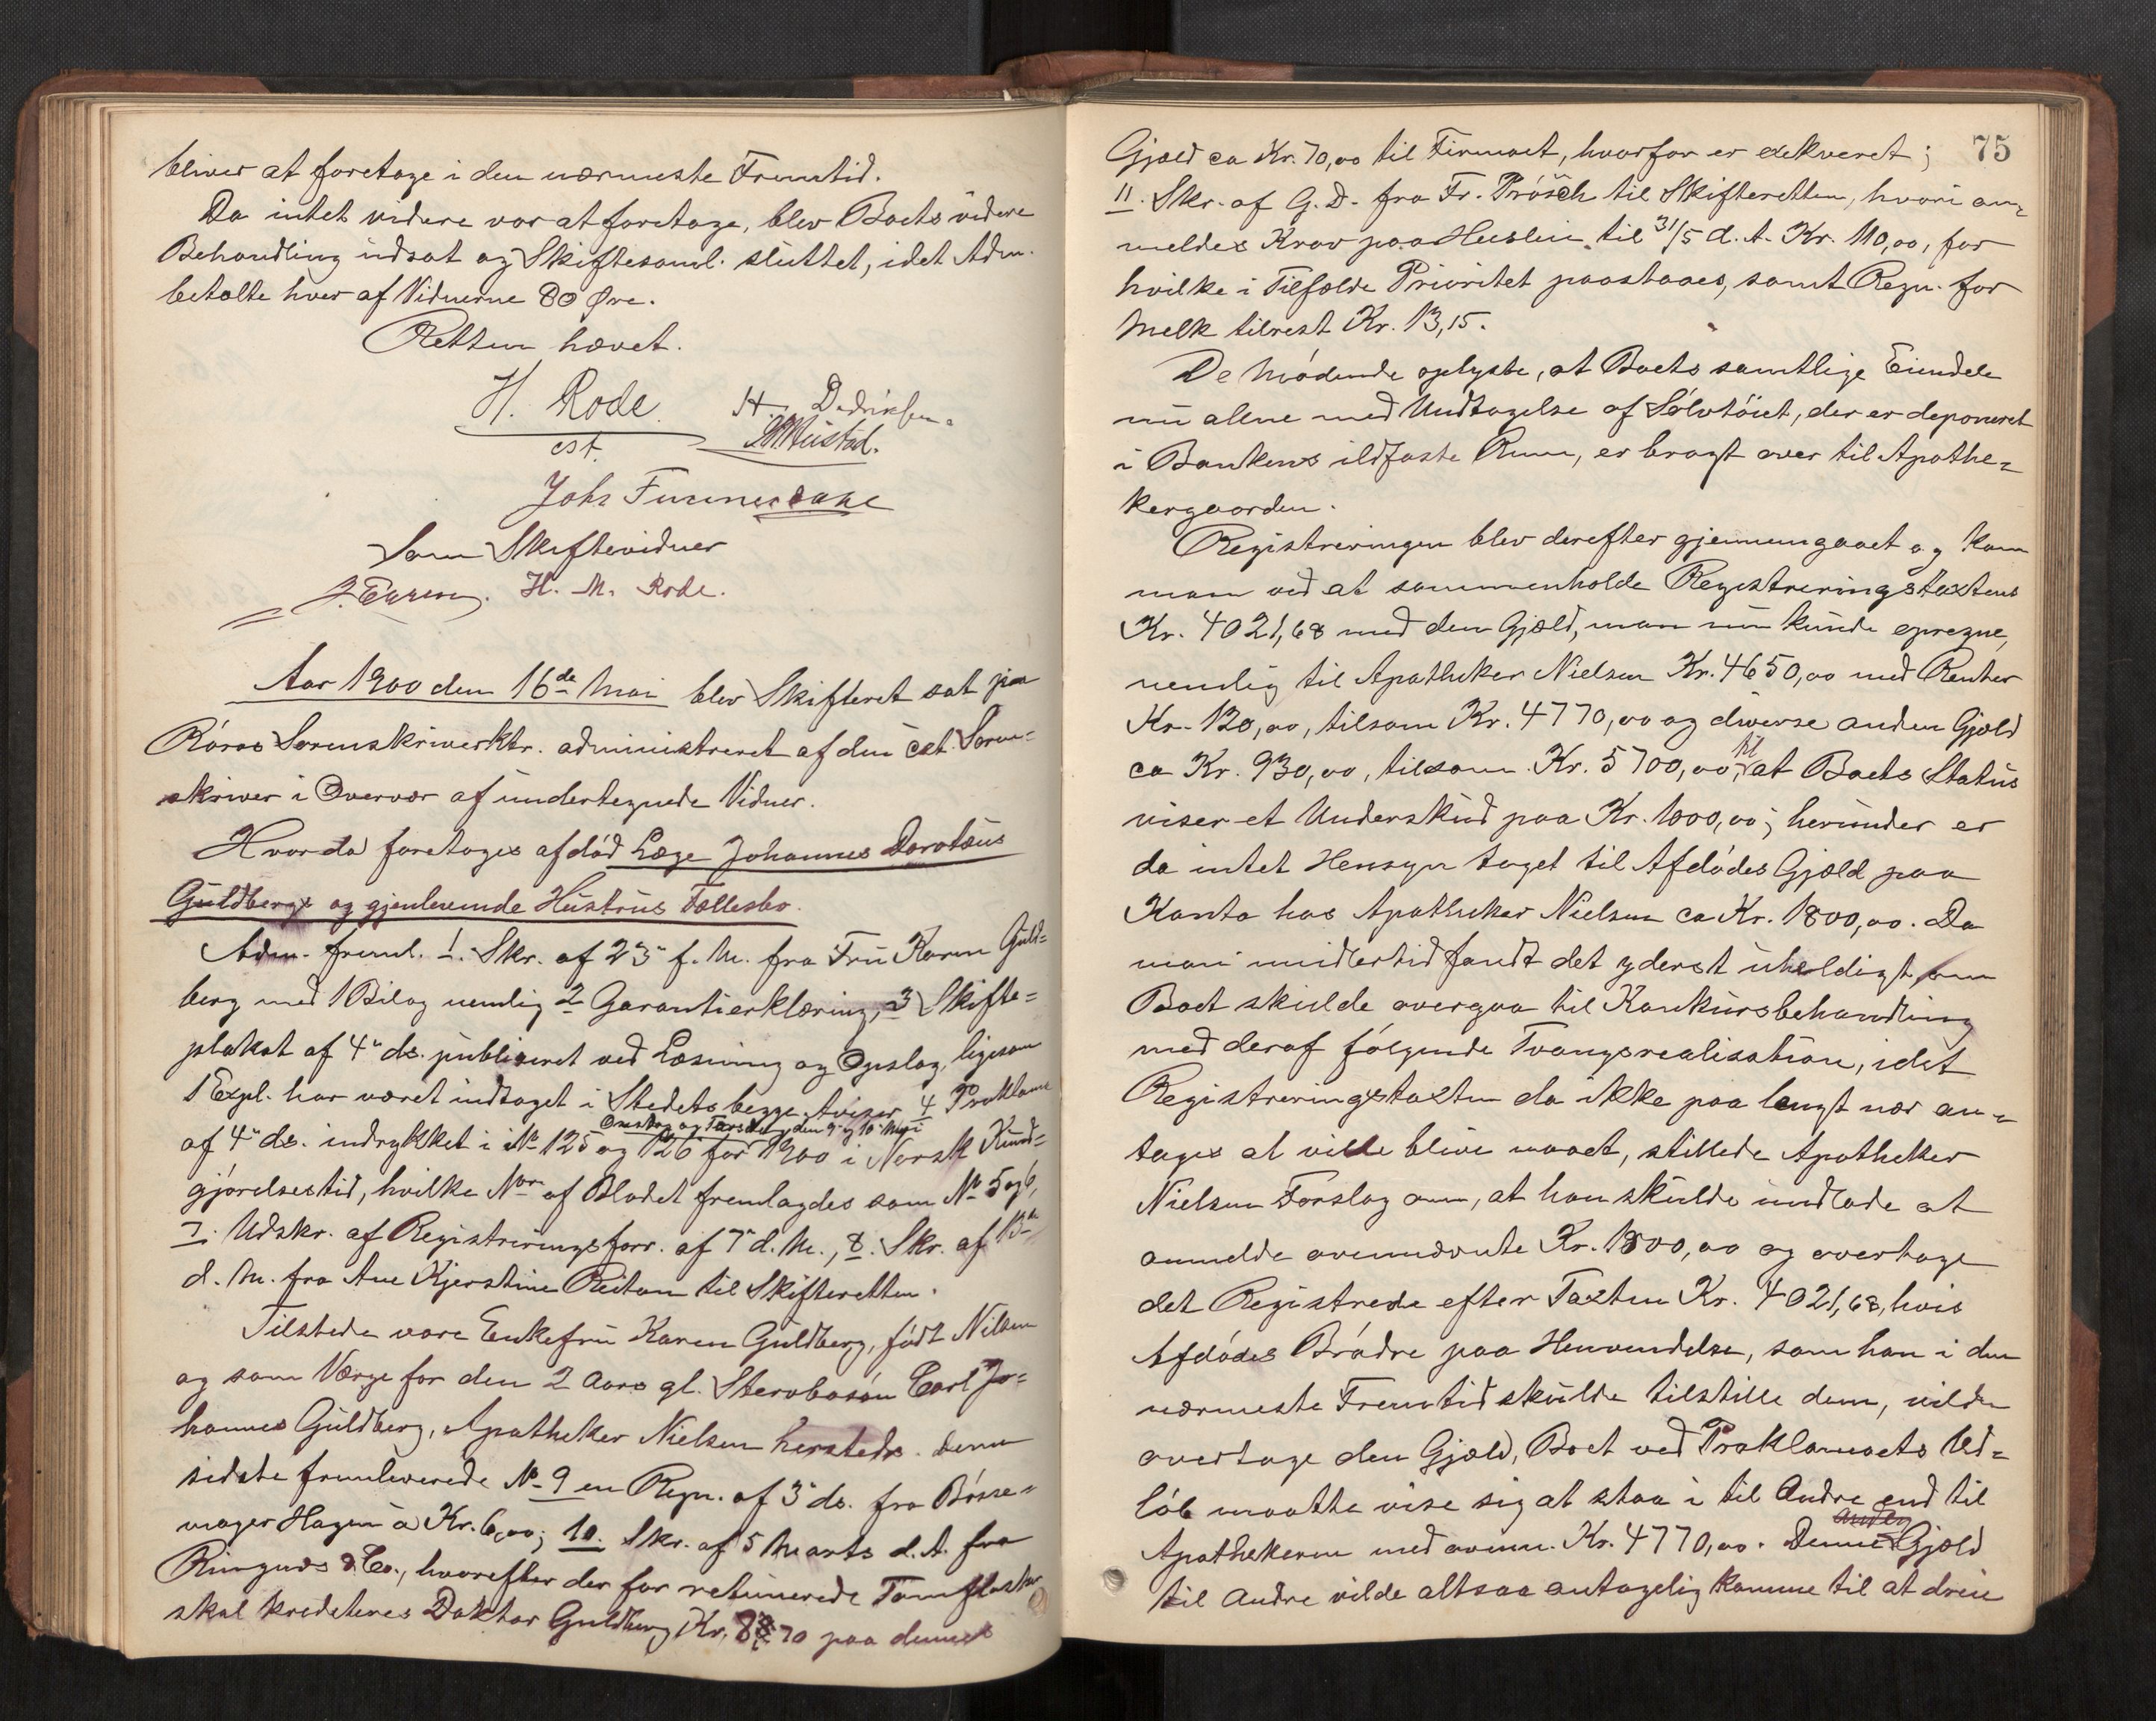 bliver at foretage i den nærmeste Fremtid.
Da intet videre var at foretage, blev Boets videre
Behandling udsat og Skiftesaml. sluttet, idet Adm.
betalte hver af Vidnerne 80 Øre.
Retten hævet.
H. Rode
cst.
Som Skiftevidner
H. M. Rode.
Aar 1900 den 16de Mai blev Skifteret sat paa
Röros Sorenskriverktr. administreret af den cst. Soren=
skriver i Overvær af undertegnede Vidner.
Hvorda foretages afdöd Læge Johannes Dorotæus
Guldbergs og gjenlevende Hustrus Fællesbo.
Adm. freml. 1. Skr. af 23" f. M. fra Fru Karen Guld=
berg med 1 Bilag nemlig 2 Garantierklæring, 3 Skifte=
plakat af 4" ds. publiceret ved Læsning og Opslag, ligesom
1 Expl. har været indtaget i Stedets begge Aviser, 4 Proklama
Onsdag og Torsdag den 9" og 10" Mai
af 4" ds. indrykket i No 125 og 126 for 1900 i Norsk Kund=
gjörelsestid, hvilke Nor af Bladet fremlagdes som No 5 og 6,
7. Udskr. af Registreringsforr. af 7" d. M., 8. Skr. af 13de
d. M. fra Ane Kjerstine Reitan til Skifteretten.
Tilstede vare Enkefru Karen Guldberg, födt Nilsen
og som Værge for den 2 Aars gl. Stervbosön Carl Jo=
hannes Guldberg, Apotheker Nielsen hersteds. Denne
sidste fremleverede No 9 en Regn. af 3" ds. fra Bösse=
mager Hagen à Kr. 6,00; 10. Skr. af 5 Marts d. A. fra
Ringnes & Co., hvorefter der for returnerede Tomflasker
skal krediteres Doktor Guldberg Kr. 70 paa dennes
75
Gjæld ca Kr. 70,00 til Firmaet, hvorfor er dekveret;
11. Skr. af G. D. fra Fr. Prösch til Skifteretten, hvori an=
meldes Krav paa Husleie til 31/5 d. A. Kr. 110,00, for
hvilke i Tilfælde Prioritet paastaaes, samt Regn. for
Melk tilrest Kr. 13,15.
De Mödende oplyste, at Boets samtlige Eiendele
nu alene med Undtagelse af Sölvtöiet, der er deponeret
i Bankens ildfaste Rum, er bragt over til Apothe=
kergaarden.
Registreringen blev derefter gjennemgaaet og kom
man ved at sammenholde Registreringstaxtens
Kr. 4021,68 med den Gjæld, man nu kunde opregne,
nemlig til Apotheker Nielsen Kr. 4650,00 med Renter
Kr. 120,00, tilsam Kr. 4770,00 og diverse anden Gjæld
ca Kr. 930,00, tilsam. Kr. 5700,00, til at Boets Status
viser et Underskud paa Kr. 1000,00; herunder er
da intet Hensyn taget til Afdödes Gjæld paa
Konto hos Apotheker Nielsen ca Kr. 1800,00. Da
man imidlertid fandt det yderst uheldigt, om
Boet skulde overgaa til Konkursbehandling
med deraf fölgende Tvangsrealisation, idet
Registreringstaxten da ikke paa langt nær an=
tages at ville blive naaet, stillede Apotheker
Nielsen Forslag om, at han skulde undlade at
anmelde ovennævnte Kr. 1800,00 og overtage
det Registrerede efter Taxten Kr. 4021,68, hvis
Afdödes Brödre paa Henvendelse, som han i den
nærmeste Fremtid skulde tilstille dem, vilde
overtage den Gjæld, Boet ved Proklamaets Ud=
löb maatte vise sig at staa i til Andre end til
Apothekeren med ovenn. Kr. 4770,00. Denne Gjæld
til Andre vilde altsaa antagelig komme til at dreie